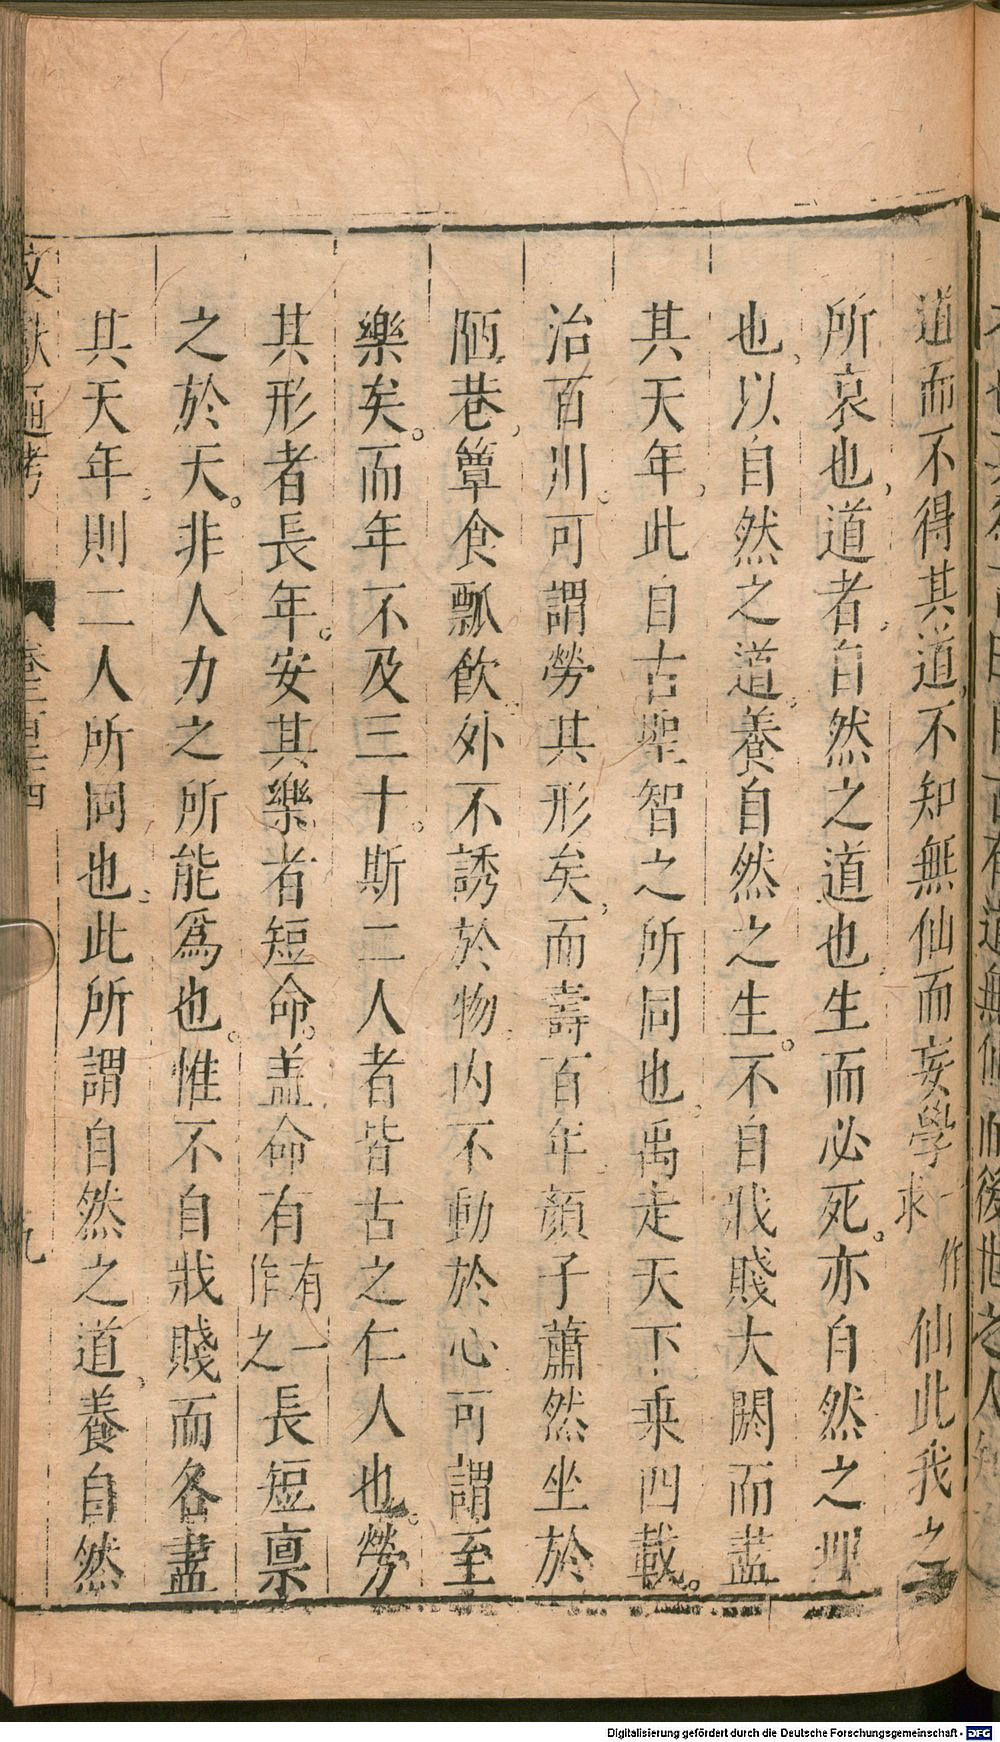 道而不得其道不知無仙而妄學一作求仙此我之
所哀也道者自然之道也生而必死亦自然之理
也以自然之道養自然之生不自戕賊大閼而盡
其天年此自古聖智之所同也禹走天下乘四載
治百川可謂勞其形矣而壽百年顏子蕭然坐於
陋巷簞食瓢飲外不誘於物內不動於心可謂至
樂矣而年不及三十斯二人者皆古之仁人也勞
其形者長年安其樂者短命盖命有有一作之長短禀
之於天非人力之所能爲也惟不自戕賊而各盡
其天年則二人所同也此所謂自然之道養自然
文獻通考 卷二百二十四 九
Digitalisierung gefördert durch die Deutsche Forschungsgemeinschaft - DFG